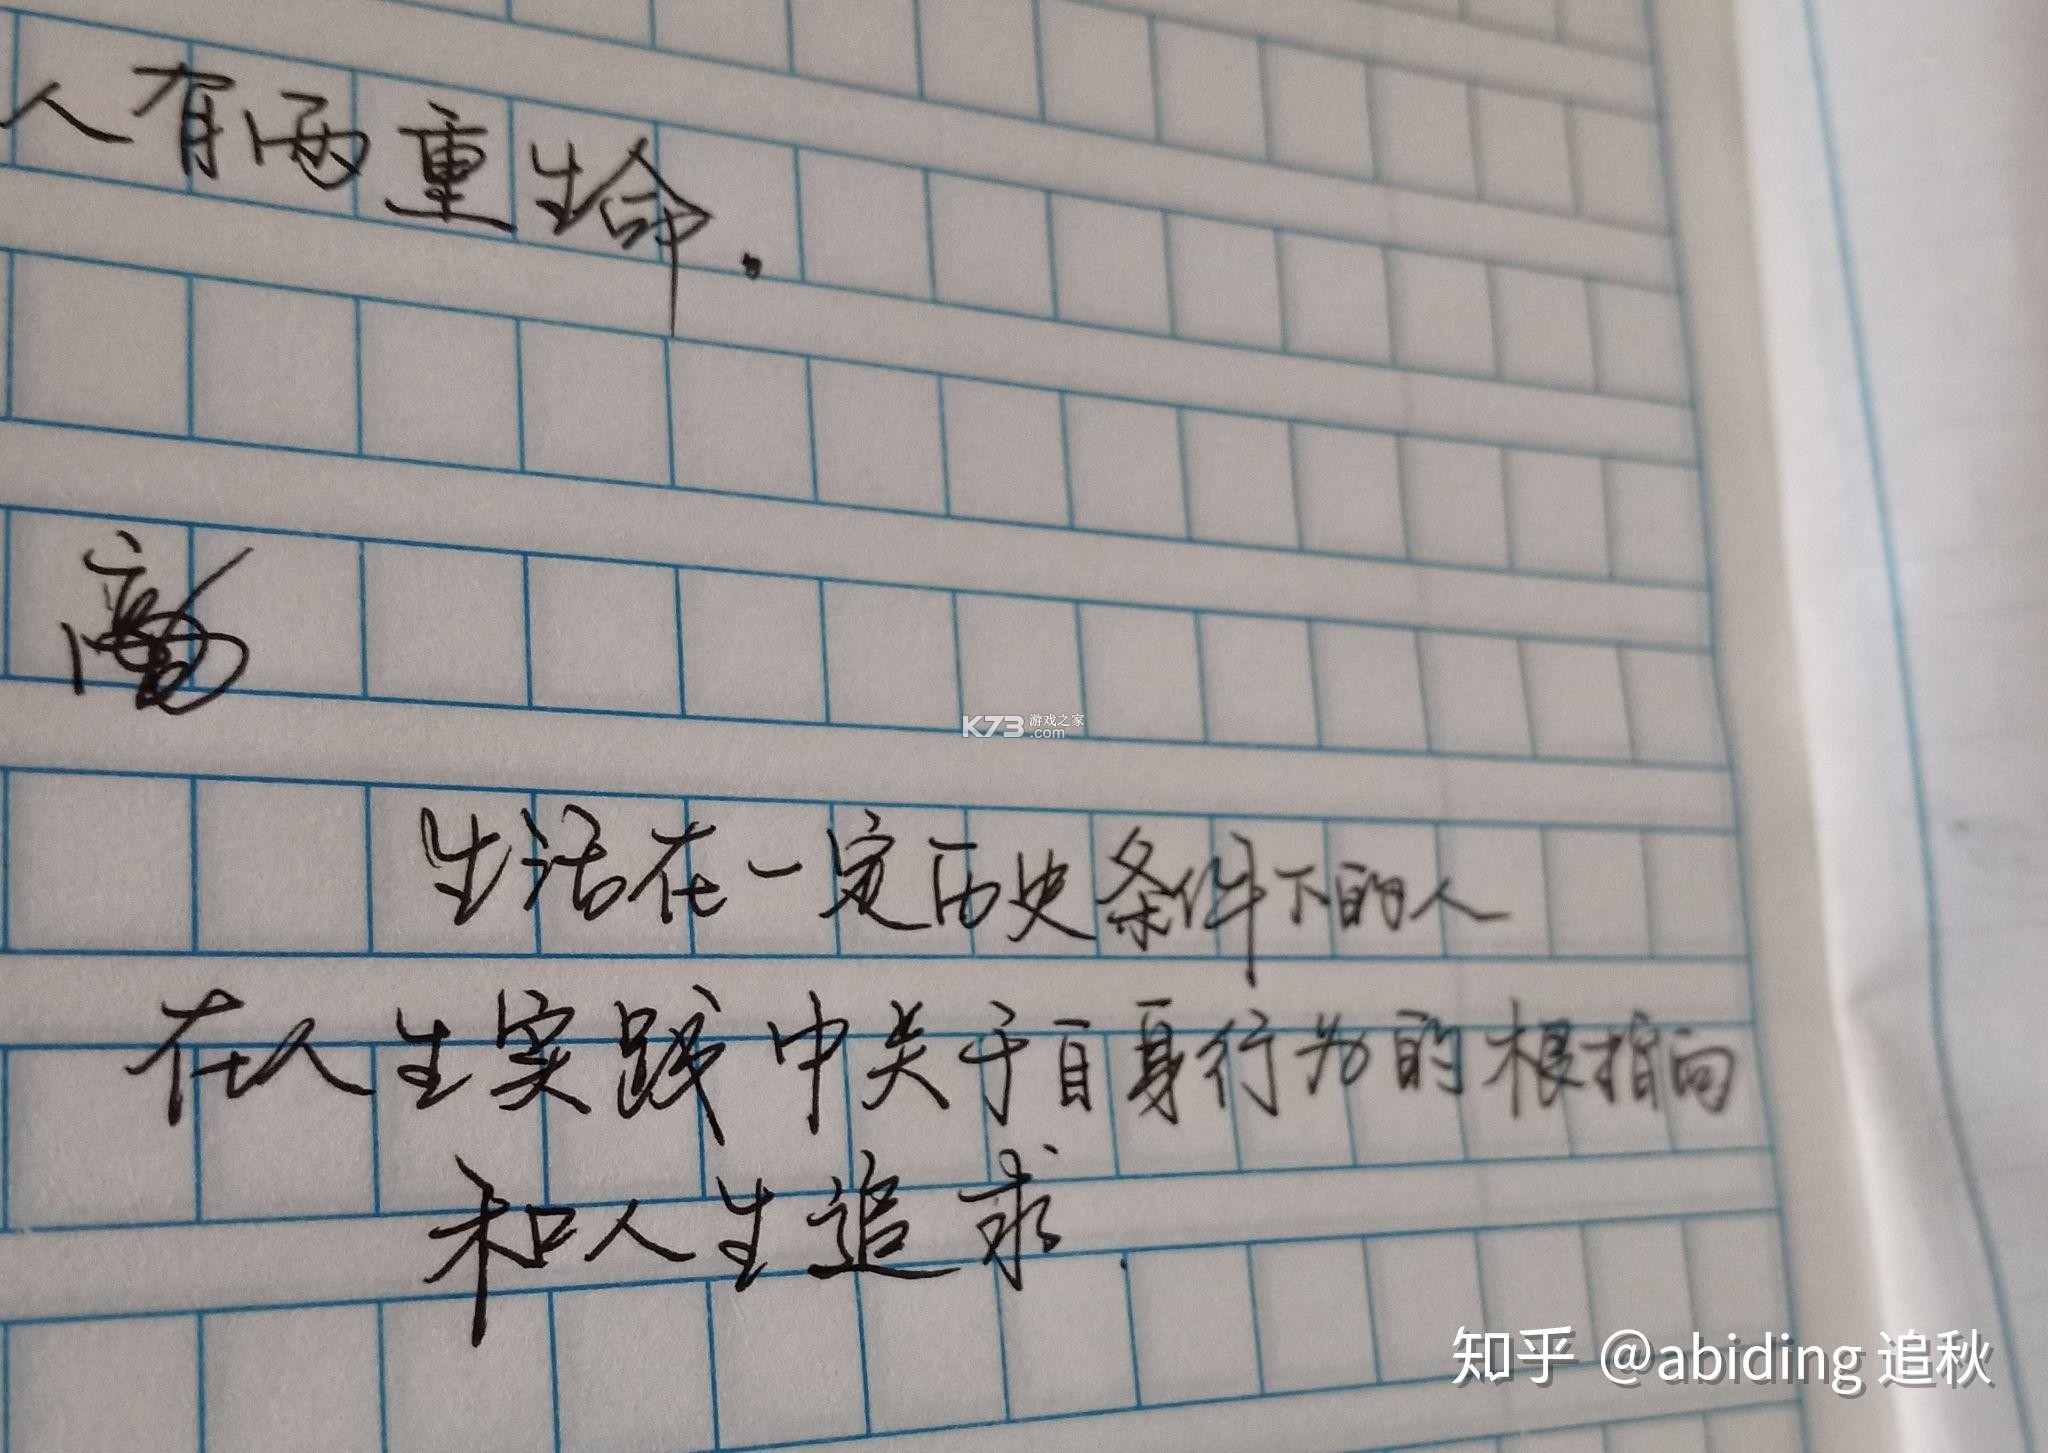 人有两重生命.
生活在一定历史条件下的人
在人生实践中关于自身行为的根指向
和人生追求.
K73 游戏之家
.com
知乎 @abiding 追秋